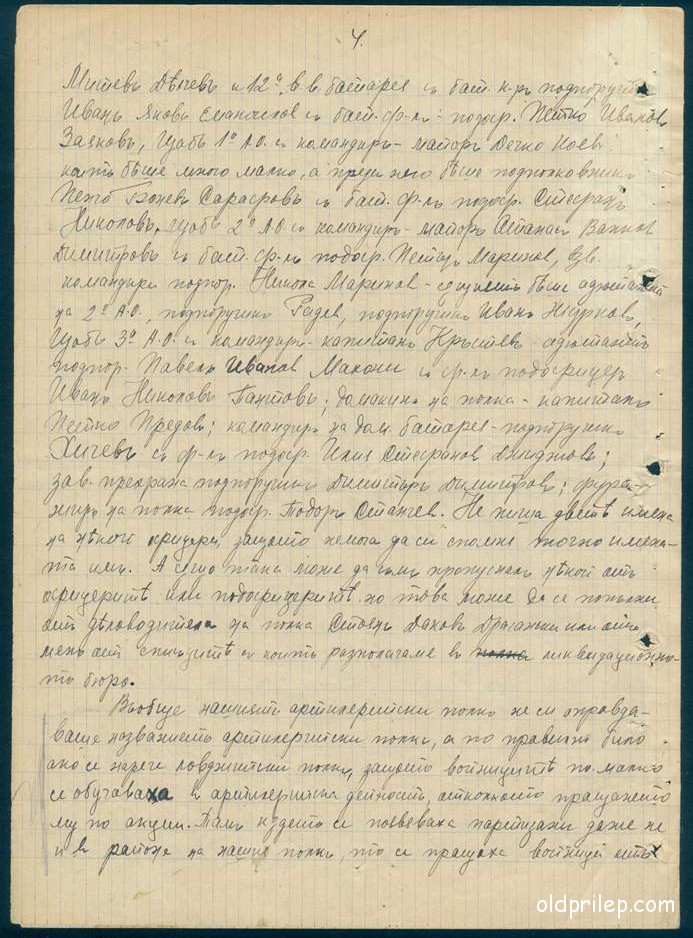 4.
Митевъ Дѣчевъ и 12а в.в. батарея съ бат. к-ръ подпоручикъ
Иванъ Яновъ съ бат. ф-лъ - подоф. Петко Иванов
Заяковъ, Щабъ 1о А.О. съ командиръ - майоръ Дечко Коев
който бѣше много малко, а преди него бѣше подполковникъ
Пенчо Божев съ бат. ф-лъ подоф. Стефанъ
Николовъ, Щабъ 2о А.О. съ командиръ - майоръ Атанас Вълков
Димитровъ съ бат. ф-лъ подоф. Петъръ Маринов, Вв.
командири подпор. Никола Маринов - бѣше адютантъ
на 2о А.О., подпоручикъ Радев, подпоручикъ Иванъ Журковъ,
Щабъ 3о А.О. съ командиръ - капитанъ Кръстевъ - адютантъ
подпор. Павелъ Иванов съ ф-лъ подофицер
Иванъ Николовъ; домакинъ на полка - капитанъ
Петко Предовъ; командиръ на дом. батарея - подпоручикъ
Хичевъ съ ф-лъ подоф. Илия Стефанов;
зав. прехрана подпоручикъ Димитъръ Димитровъ; фура-
жиръ на полка подоф. Тодоръ Станчев. Не пиша двете имена
на нѣкой офицери, защото немога да си спомня точно имена-
та им. А също така може да съмъ пропусналъ нѣкой отъ
офицеритѣ или подофицеритѣ но това може да се попълни
отъ дѣловодителя на полка Стоенъ Даковъ Драгански или отъ
мен отъ списъцитѣ с които разполагаме въ полка ликвидационно-
то бюро.
Въобще нашиятъ артилерийски полкъ не си оправда-
ваше названието артилерийски полкъ, а по правилно било
ако се нарече ловджийски полкъ, защото войницитѣ по-малко
се обучаваха въ артилерийска дейность, отколкото пращането
му по акции. Тамъ кздето се появеваха партизани даже не
и въ района на нашия полкъ, то се пращаха войници отъ
oldprilep.com